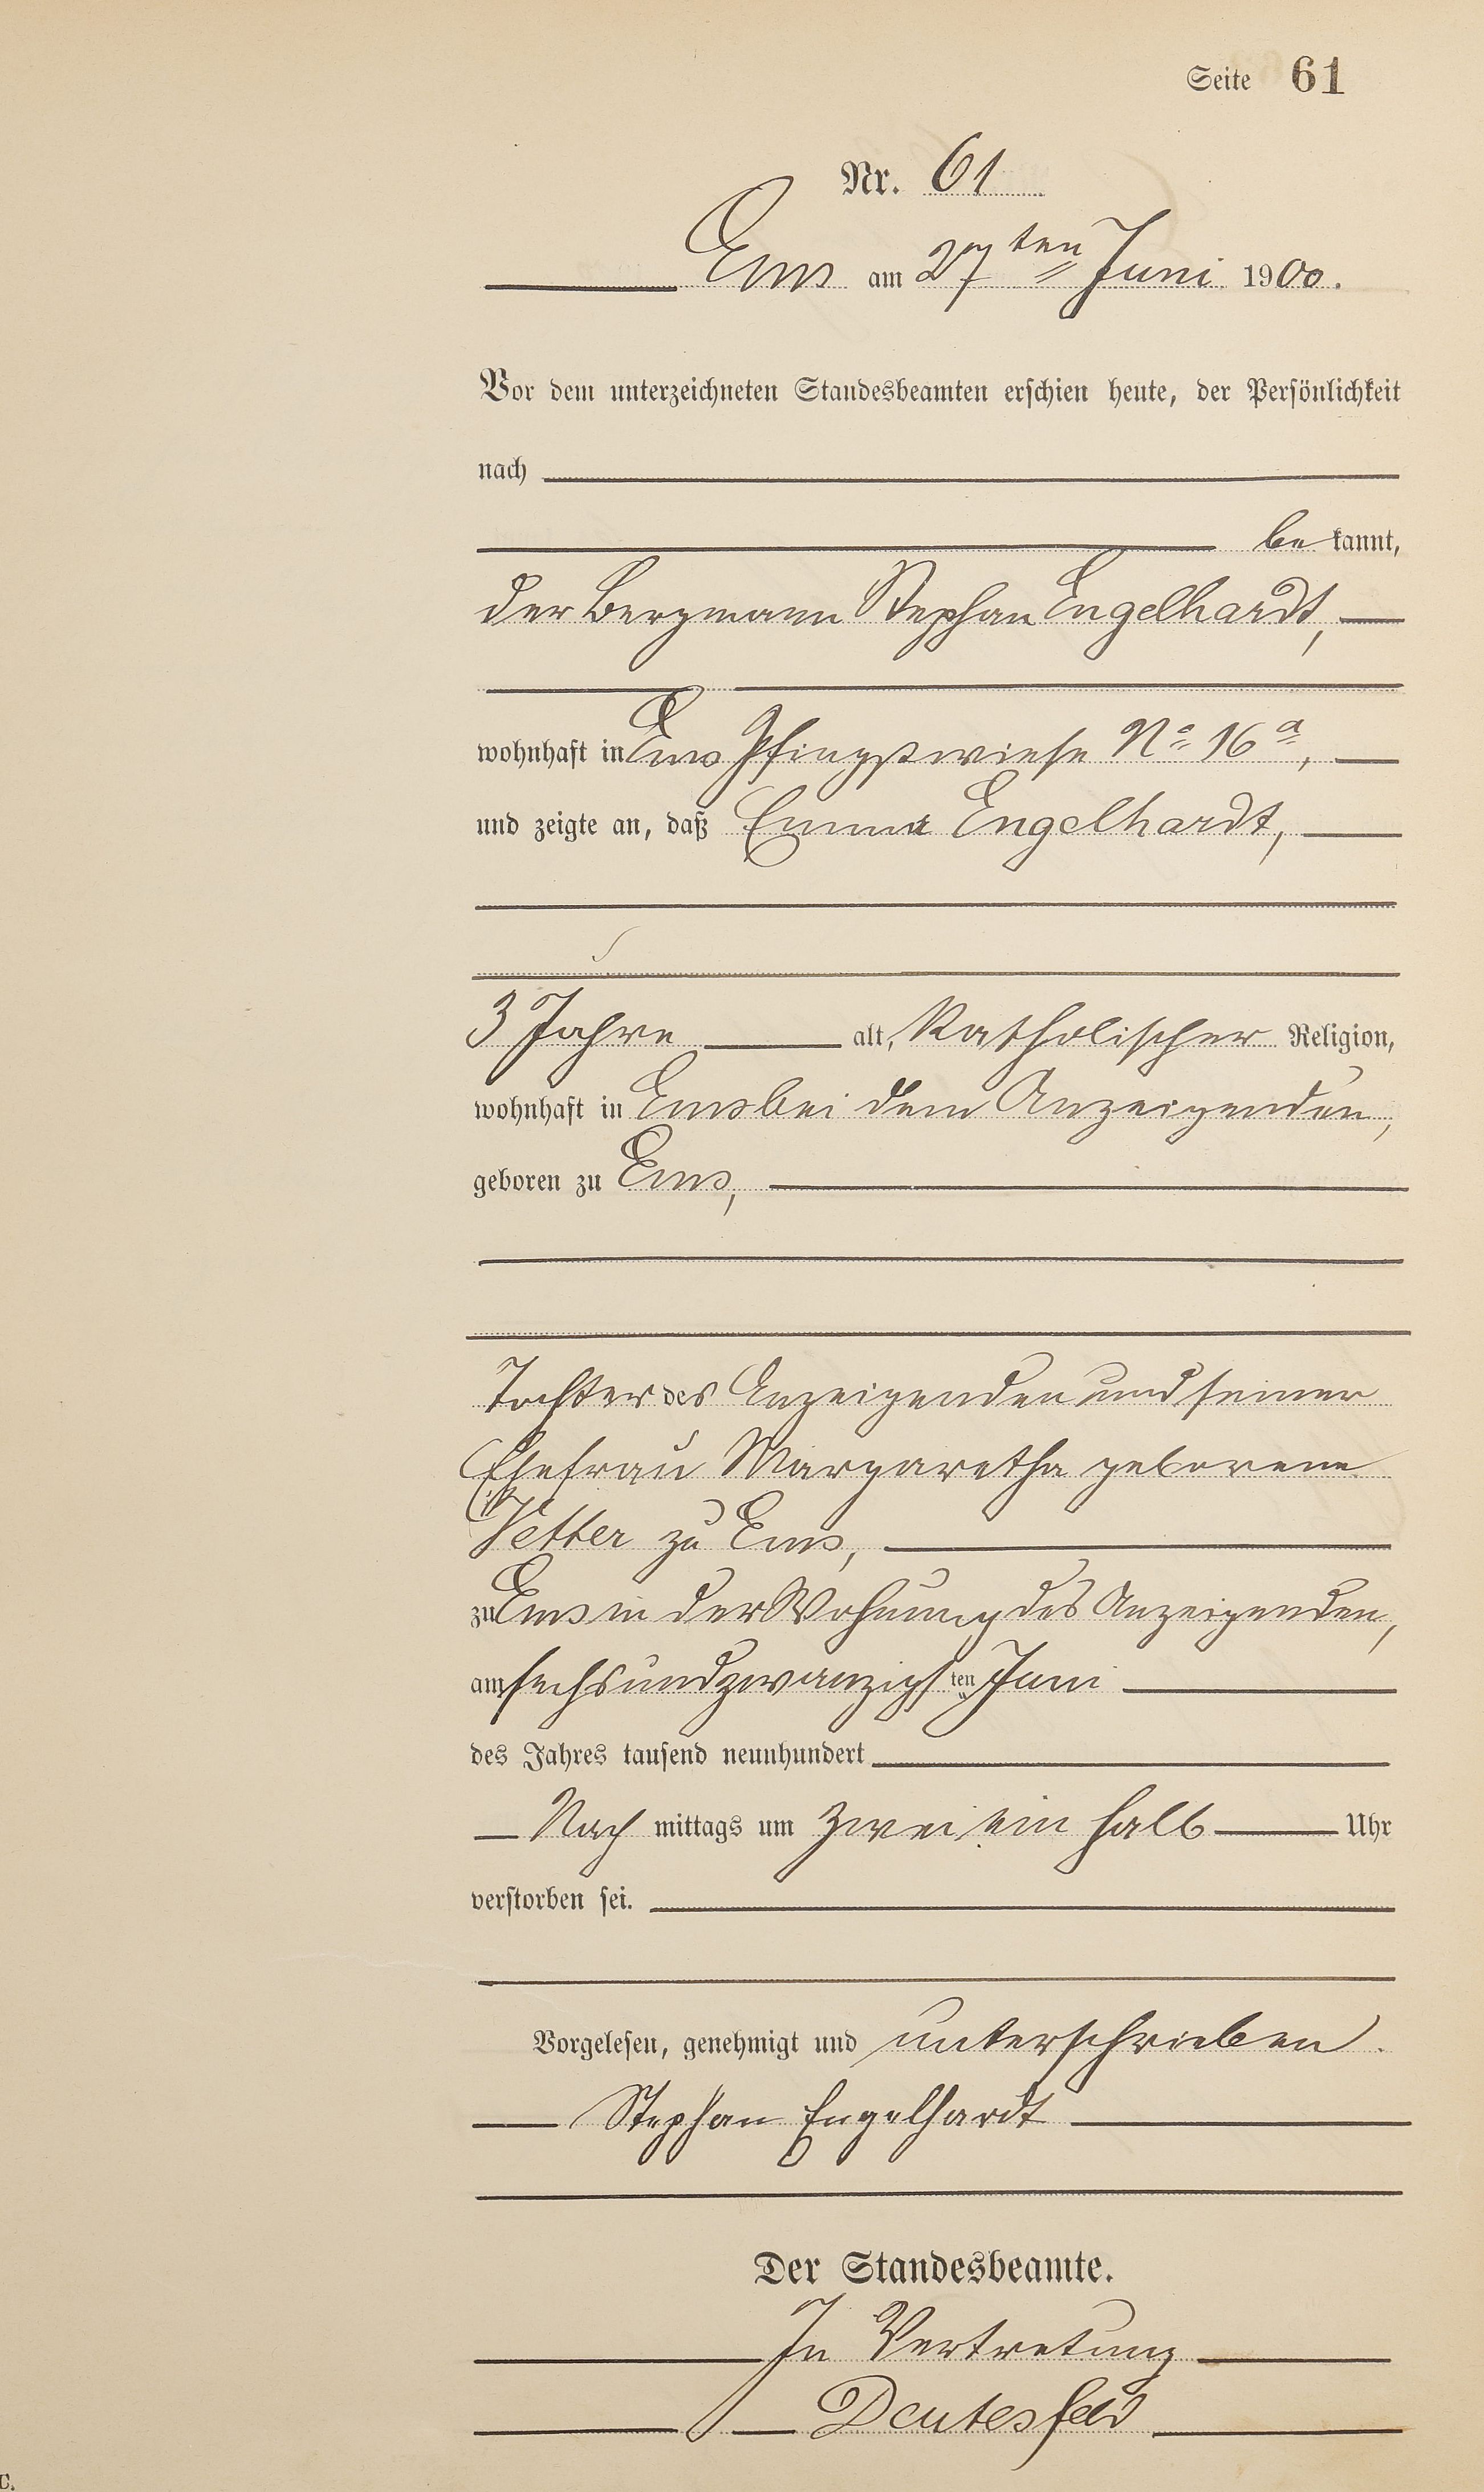 Seite 61
Nr. 61
Ems am 27ten Juni 1900.
Vor dem unterzeichneten Standesbeamten erschien heute, der Persönlichkeit
nach
be kannt,
der Bergmann Stephan Engelhardt,
wohnhaft in Ems Pfingstwiese No 16a,
und zeigte an, daß Emma Engelhardt,
3 Jahre alt, katholischer Religion,
wohnhaft in Ems bei dem Anzeigenden,
geboren zu Ems,
Tochter des Anzeigenden und seiner
Ehefrau Margaretha geborene
Vetter zu Ems,
zu Ems in der Wohnung des Anzeigenden,
am sechsundzwanzigsten Juni
des Jahres tausend neunhundert
Nach mittags um zwei ein halb Uhr
verstorben sei.
Vorgelesen, genehmigt und unterschrieben.
Stephan Engelhardt
Der Standesbeamte.
In Vertretung
Deutesfeld